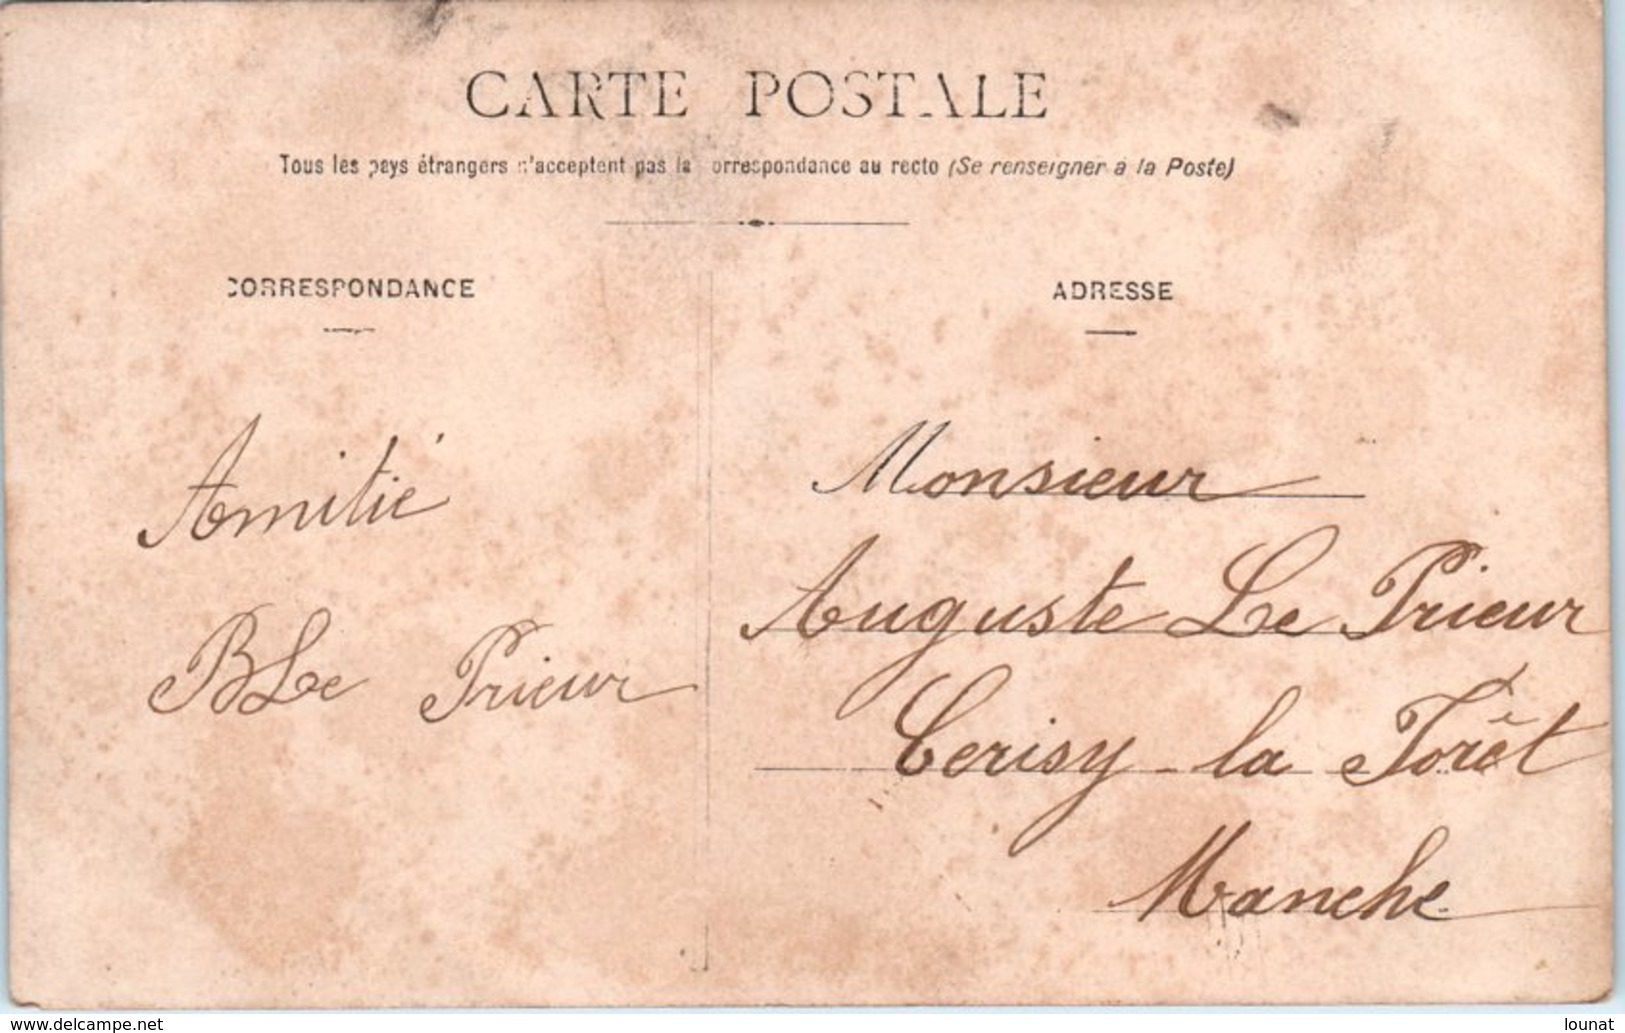 CARTE POSTALE
Tous les pays étrangers n'acceptent pas la correspondance au recto (Se renseigner à la Poste)
CORRESPONDANCE
Amitié
B Le Prieur
ADRESSE
Monsieur
Auguste Le Prieur
Cerisy-la Forêt
Manche
www.delcampe.net
lounat